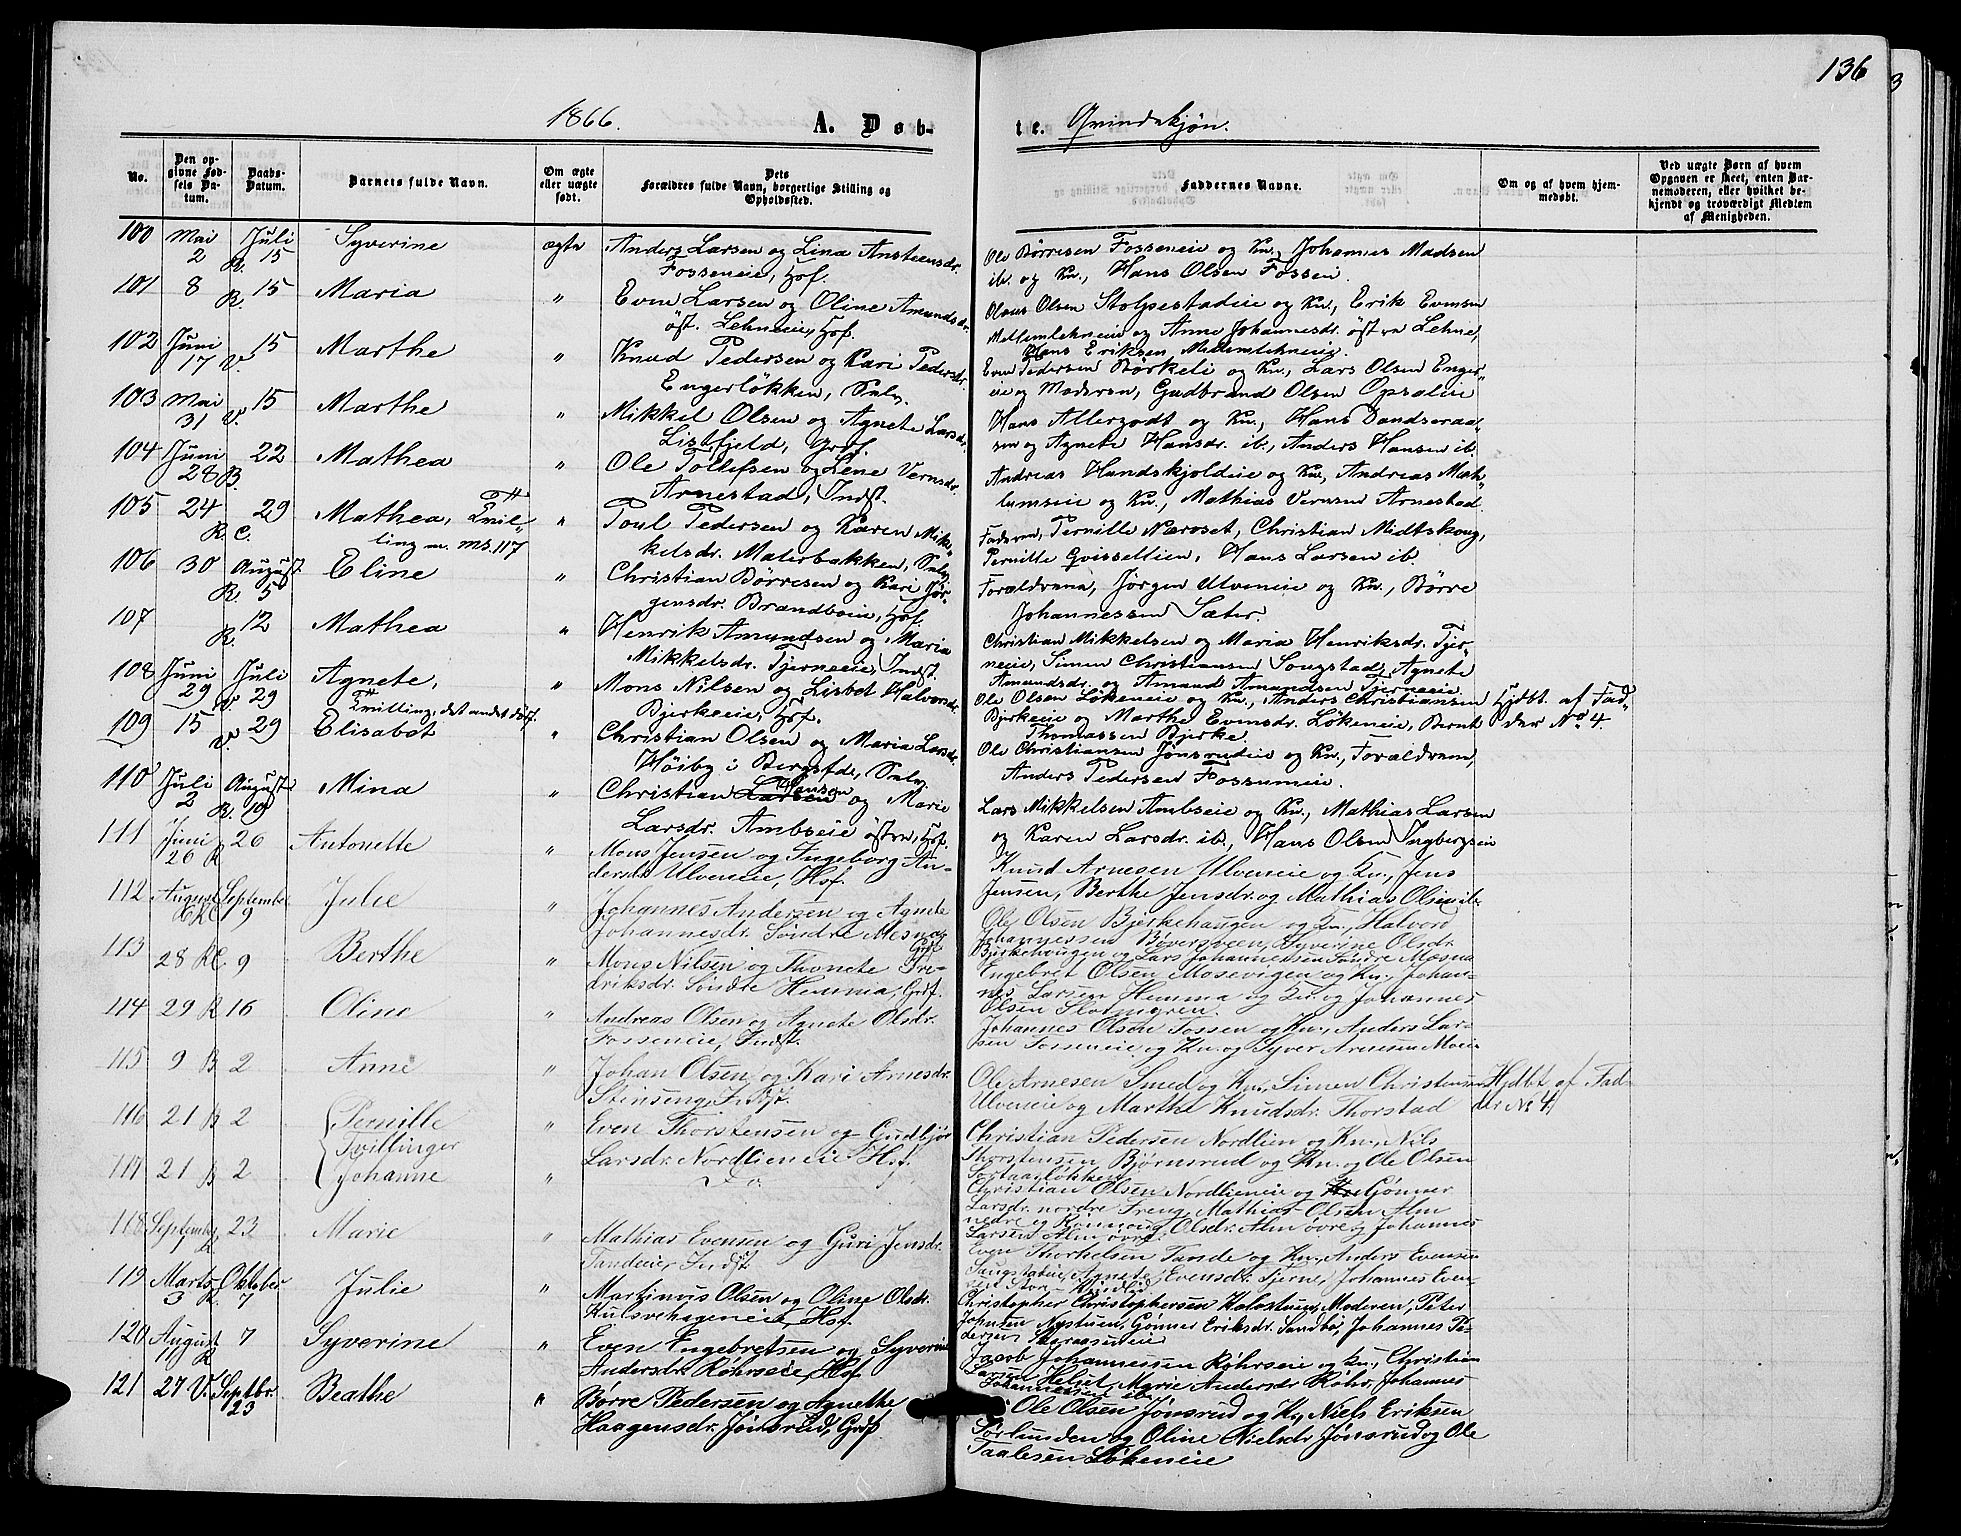 136
1866.
A. Døb-
te. Qvindekjøn.
No.
Den op-
givne Fød-
sels Da-
tum.
Daabs-
Datum.
Barnets fulde Navn.
Om ægte
eller uægte
født.
Dets
Forældres fulde Navn, borgerlige Stilling og
Opholdssted.
Faddernes Navne.
Om og af hvem hjem-
medøbt.
Ved uægte Børn af hvem
Opgaven er skeet, enten Bar-
nemoderen, eller hvilket be-
kjendt og troværdigt Medlem
af Menigheden.
100 Mai 2 R. Juli 15 Syverine ægte Anders Larsen og Lina Ansteensdr.
Fosseneie, Hsf.
Ole Børresen Fosseneie og Kn., Johannes Madsen
ib. og Kn., Hans Olsen Fossen.
101 8 R. 15 Maria " Even Larsen og Oline Amundsdr.
öst. Lehneeie, Hsf.
Olaus Olsen Stolpestadeie og Kn., Erik Evensen
Mellemlehneeie og Anne Johannesdr. östre Lehne,
Hans Eriksen, Mellemlehneeie.
102 Juni 17 V. 15 Marthe " Knud Pedersen og Kari Pedersdr.
Engerløkken, Sulv.
Even Pedersen Børkeli og Kn., Lars Olsen Enger-
eie og Moderen, Gudbrand Olsen Opsaleie
103 Mai 31 V. 15 Marthe " Mikkel Olsen og Agnete Larsdr.
Listfjeld, Grdf.
Hans Allergodt og Kn., Hans Dandseraa-
sen og Agnete Hansdr. ib., Anders Hansen ib.
104 Juni 28 B. 22 Mathea " Ole Tollefsen og Lene Vernsdr.
Arnestad, Indst.
Andreas Hundskjoldeie og Kn., Andreas Meh-
lumseie og Kn., Mathias Vernsen Arnestad.
105 24 R.C. 29 Mathea, Tvil-
ling m. MS. 117 " Poul Pedersen og Karen Mik-
kelsdr. Materbakken, Sulv.
Faderen, Pernille Næroset, Christian Midtskoug,
Pernille Qvisellien, Hans Larsen ib.
106 30 R. August 5 Eline " Christian Børresen og Kari Jør-
gensdr. Brandboeie, Hsf.
Forældrene, Jørgen Ulveneie og Kn., Børre
Johannessen Sæter.
107 R. 12 Mathea " Henrik Amundsen og Maria
Mikkelsdr. Tjerneeie, Indst.
Christian Mikkelsen og Maria Henriksdr. Tjer-
neeie, Simen Christiansen Sougstad, Agnete
Amundsdr. og Amund Amundsen Tjerneeie
108 Juni 29 V. Juli 29 Agnete,
Tvilling, det andet dødf. " Mons Nilsen og Lisbet Halvorsdr.
Bjerkeeie, Hsf.
Ole Olsen Løkeneie og Kn., Anders Christiansen
Bjerkeeie og Marthe Evensdr. Løkeneie, Bernt
Thomassen Bjerke.
Hjdbt. af Fad-
der No 4.
109 15 V. 29 Elisabet " Christian Olsen og Maria Larsdr.
Høiby i Bergsfde, Sulv.
Ole Christiansen Jønsrudeie og Kn., Forældrene,
Anders Pedersen Fossumeie.
110 Juli 2 R. August 19 Mina " Christian Larsen Hansen og Marie
Larsdr. Ambseie östre, Hsf.
Lars Mikkelsen Ambseie og Kn., Mathias Larsen
og Karen Larsdr. ib., Hans Olsen Ingbergseie
111 Juni 26 R 26 Antonette " Mons Jensen og Ingeborg An-
dersdr Ulveneie, Hsf.
Knud Arnesen Ulveneie og Kn., Jens
Jensen, Berthe Jensdr. og Mathias Olsen ib.
112 August RC September 9 Julie " Johannes Andersen og Agnete
Johannesdr. Søndre Mesna, Grdf.
Ole Olsen Bjerkehaugen og Kn., Halvor
Johannessen Bøversveen, Syverine Olsdr.
Bjerkehougen og Lars Johannessen Søndre Mæsna
113 28 RC. 9 Berthe " Mons Nilsen og Thonete Fre-
driksdr. Søndre Hemma, Grdf.
Engebret Olsen Mosevigen og Kn., Johan-
nes Larsen Hemma og Kn. og Johannes
Olsen
114 29 R 16 Oline " Andreas Olsen og Agnete Olsdr.
Fosseneie, Indst.
Johannes Olsen Fossen og Kn., Anders Lar-
sen Fosseneie og Kn. og Syver Arnesen Moeie
115 9 B 2 Anne " Johan Olsen og Kari Arnesdr.
Stenseng, Indst.
Ole Arnesen Smed og Kn., Simen Christensen
Ulveneie og Marthe Knudsdr. Thorstad
Hjdbt af Fad-
der No 4
116 21 B 2 Pernille
Tvillinger " Even Thorstensen og Gudbjør
Larsdr. Nordlieneie Hsf.
Christian Pedersen Nordlien og Kn., Nils
Thorstensen Bjørnsrud og Kn. og Ole Olsen
Sortaasløkken
117 21 B 2 Johanne " Do
Christian Olsen Nordlieneie og Gønner
Larsdr. nordre Freng, Mathias Olsen Alm
nedre og Rønnoug Olsdr. Alm øvre og Johannes
Larsen Alm øvre.
118 September R 23 Marie " Mathias Evensen og Guri Jensdr.
Tandeie, Indst.
Even Thorkelsen Tande og Kn., Anders Evensen
Saugstadeie, Agnete Evensdr. Tjerne, Johannes Even-
119 Marts 3 R. Oktober 7 Julie " Martinus Olsen og Oline Olsdr.
Kulsvehageneie, Hsf.
Christopher Christophersen Kolostuen, Moderen, Peter
Johnsen Nystuen, Gønner Eriksdr. Sandbo, Johannes Pe-
dersen
120 August 11 R 7 Syverine " Even Engebretsen og Syverine
Andersdr Røhrseie, Hsf
Jacob Johannessen Røhrseie og Kn., Christian
Larsen Helset, Marie Andersdr Røhr, Johannes
Johannessen ib.
121 27 V. Septbr. 23 Beathe " Børre Pedersen og Agnethe
Haagensdr. Jønsrud, Grdf
Ole Olsen Jønsrud og Kn, Niels Eriksen
Sørlunden og Oline Nielsdr Jønsrud og Ole
Taalesen Løkeneie